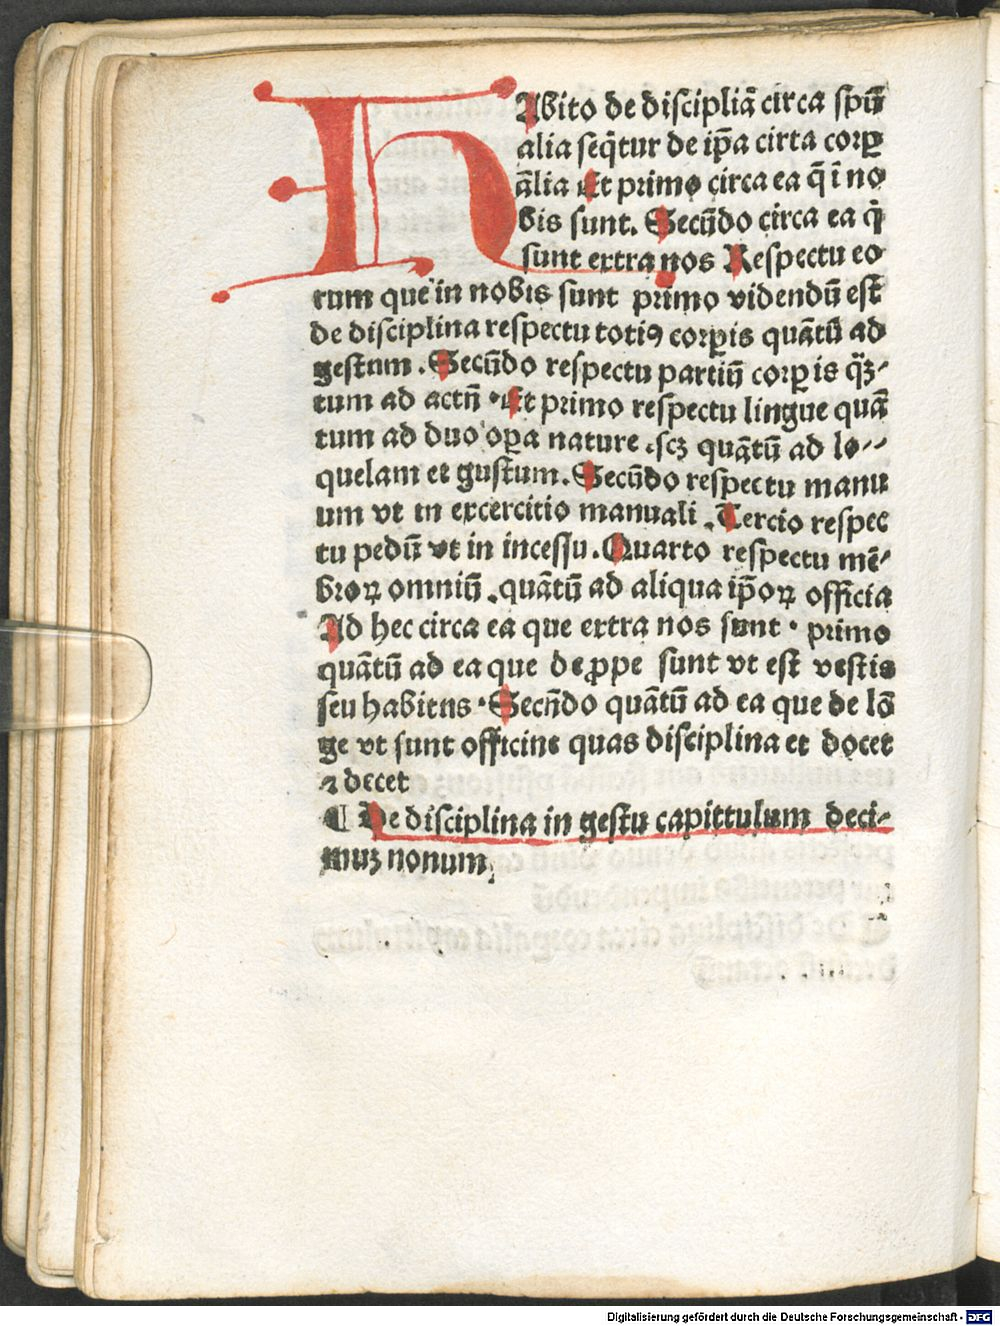 HAbito de discipliā circa spū
alia seq̄tur de ip̄a cirta corꝑ
ālia Et primo circa ea q̄ ī no
bis sunt. Secūdo circa ea q̄
sunt extra nos Respectu eo
rum que in nobis sunt primo videndū est
de disciplina respectu totiꝯ corꝑis quātū ad
gestum. Secūdo respectu partiū corꝑis q̄ꝫ-
tum ad actū. Et primo respectu lingue quā
tum ad duo oꝑa nature .scꝫ quātū ad lo-
quelam et gustum. Secūdo respectu manu
um vt in excercitio manuali. Tercio respec
tu pedū vt in incessu. Quarto respectu mē-
broꝝ omniū .quātū ad aliqua ip̄oꝝ officia
Ad hec circa ea que extra nos sunt. primo
quātū ad ea que de ꝓpe sunt vt est vestis
seu habitus. Secūdo quātū ad ea que de lō
ge vt sunt officine quas disciplina et docet
⁊ decet
¶ De disciplina in gestu capittulum deci-
muꝫ nonum,
Digitalisierung gefördert durch die Deutsche Forschungsgemeinschaft - DFG